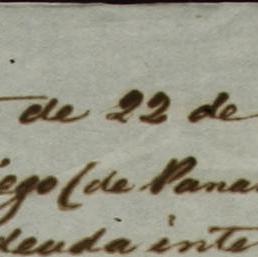 de 22 de
iego (de Pana
deuda inte